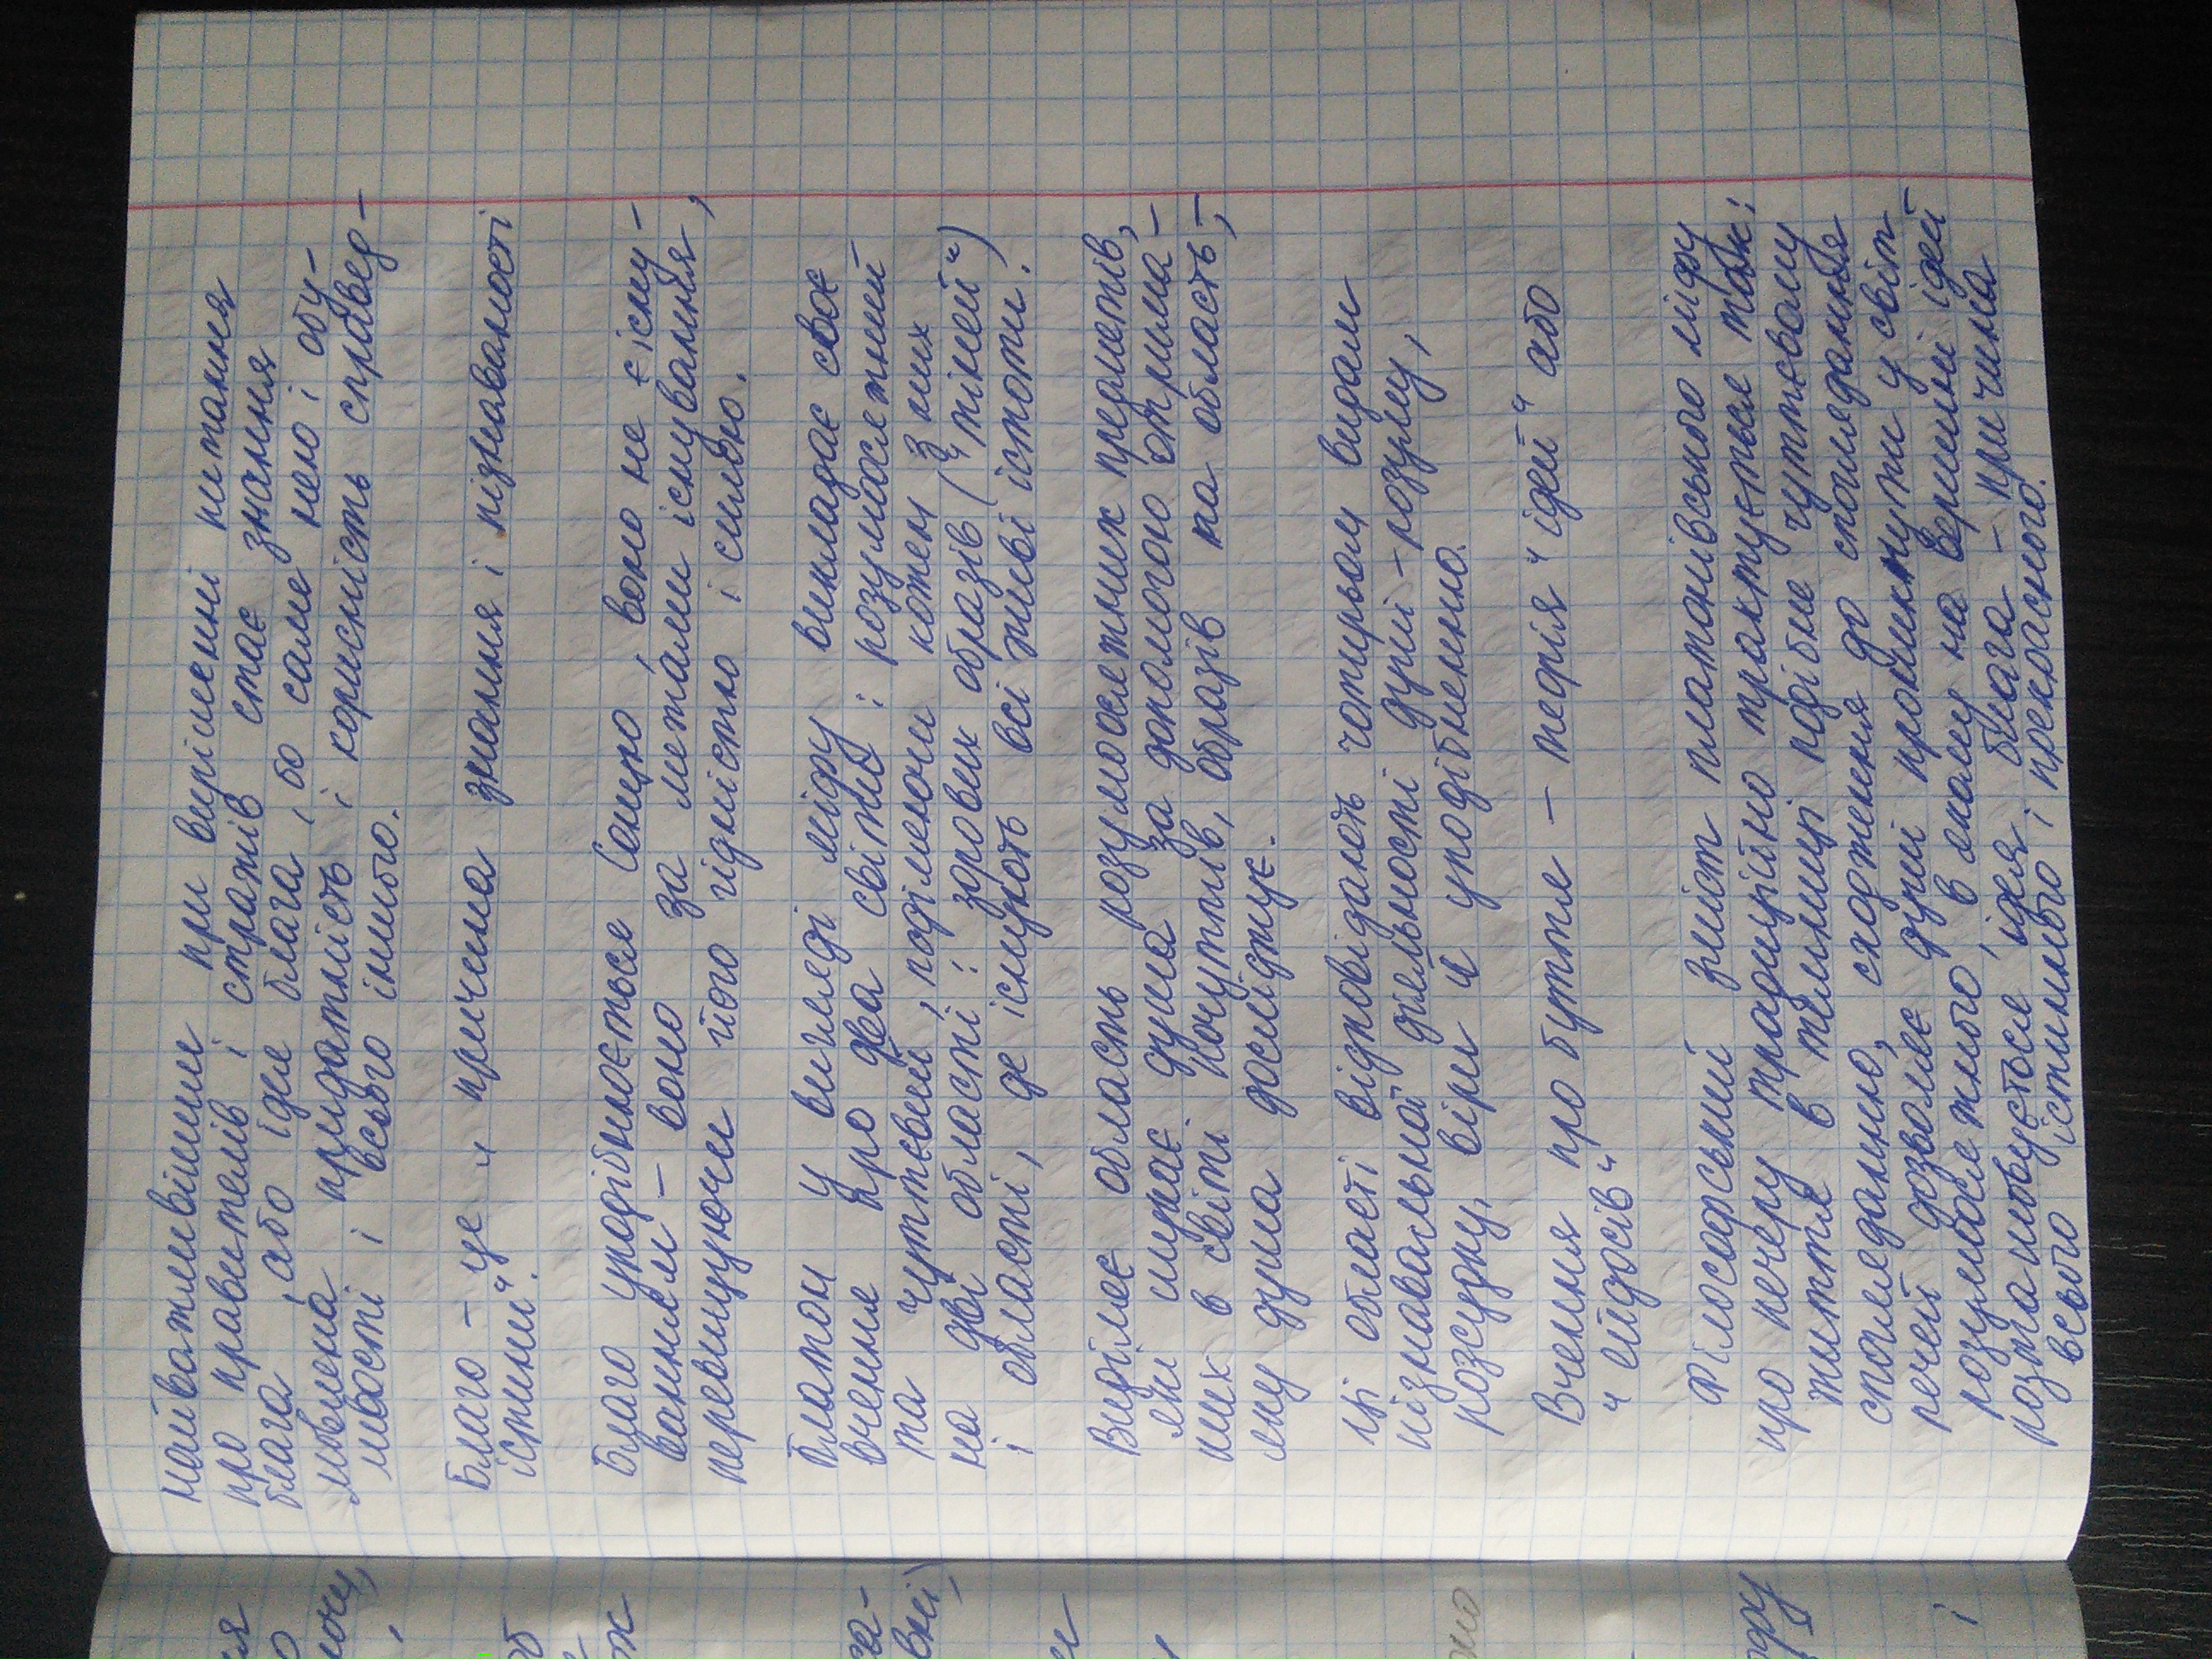 найважливішим при вирішенні питання
про правителів і стражів стає знання
блага, або ідея блага, бо саме нею і обу-
мовлена придатність і корисність справед-
ливості і всього іншого.
Благо - це "причина знання і пізнаваності
істини".
Благо уподібнюється Сонцю, воно не є існу-
ванням - воно за межами існування,
перевищуючи його гідністю і силою.
Платон у вигляді міфу викладає своє
вчення про два світи: розумосяжний
та чуттєвий, поділяючи кожен з них
на дві області: зорових образів ("тіней")
і області, де існують всі живі істоти.
Виділяє область розумосяжних предметів,
які шукає душа за допомогою отрима-
них в світі почуттів, образів та область,
яку душа досліджує.
Ці області відповідають чотирьом видам
пізнавальної діяльності душі - розуму,
розсудку, віри й уподібненню.
Вчення про буття - теорія "ідей" або
"ейдосів"
Філософський зміст платонівського міфу
про печеру традиційно трактується так:
життя в темниці подібне чуттєвому
спогляданню, сходження до споглядання
речей дозволяє душі проникнути у світ
розумосяжного, в якому на вершині ідей
розташовується ідея блага - причина
всього істинного і прекрасного.